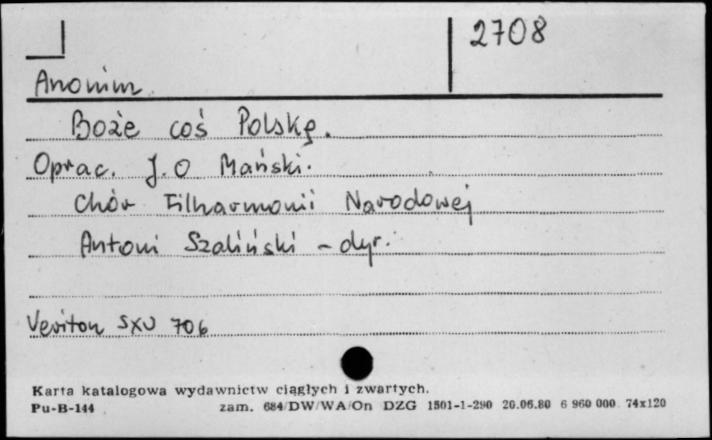 2708
Anonim
Boże coś Polskę.
Oprac. J. O Mański.
Chór Filharmonii Narodowej
Antoni Szaliński - dyr.
Veriton SXV 706
Karta katalogowa wydawnictw ciągłych i zwartych.
Pu-B-144 zam. 684/DW/WA/On DZG 1501-1-290 20.06.80 6 960 000 74x120